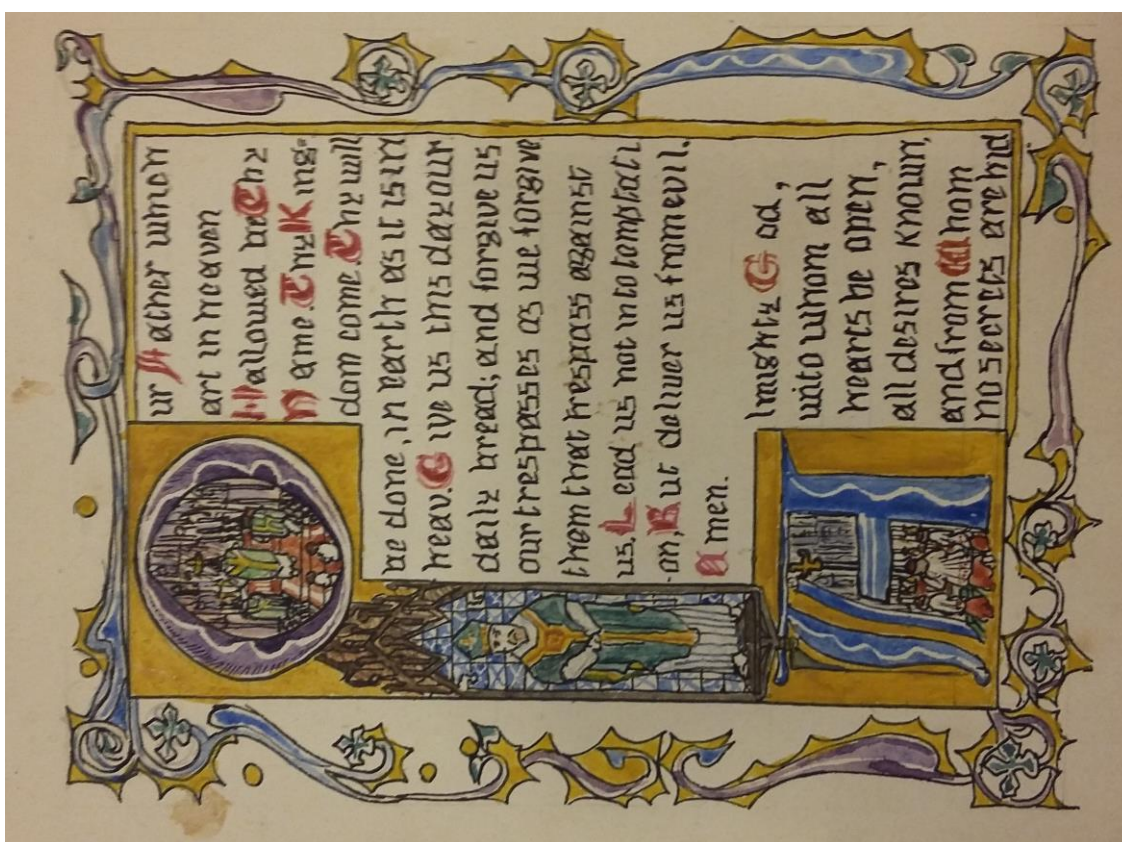 Our Father which
art in heaven
Hallowed be Thy
Name. Thy King=
dom come. Thy will
be done, in earth as it is in
heav. Give us this day our
daily bread; and forgive us
our trespasses as we forgive
them that trespass against
us. Lead us not into temptati
-on, But deliver us from evil.
Amen.
Almighty God,
unto whom all
hearts be open,
all desires known,
and from Whom
no secrets are hid